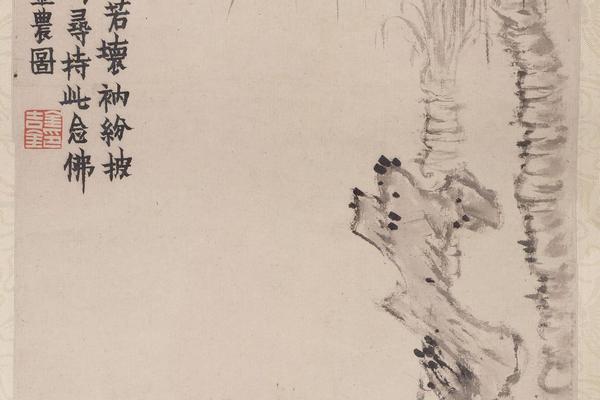 若壞衲紛披
尋持此念佛
農圖